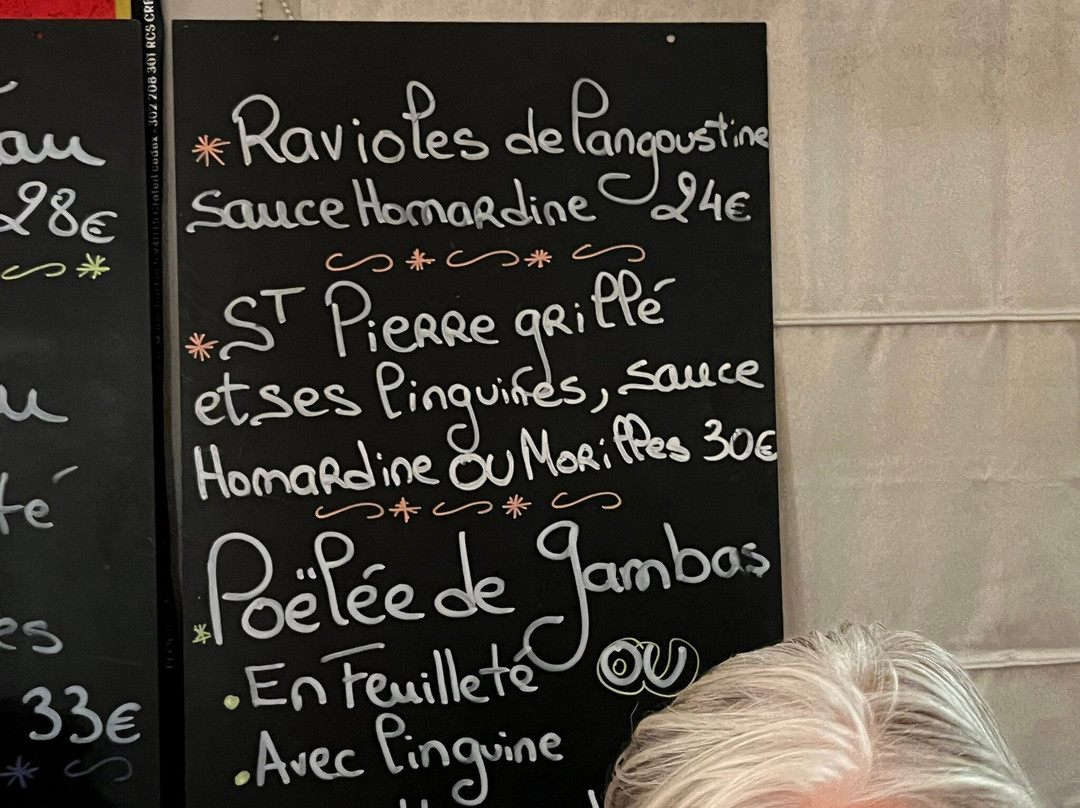 28€
té
es
33€
302 208 301 RCS CRE
* Ravioles de langoustine
sauce Homardine 24€
* ST Pierre grillé
et ses linguines, sauce
Homardine OU Morilles 30€
* Poëlée de gambas
. En Feuilleté OU
. Avec linguine